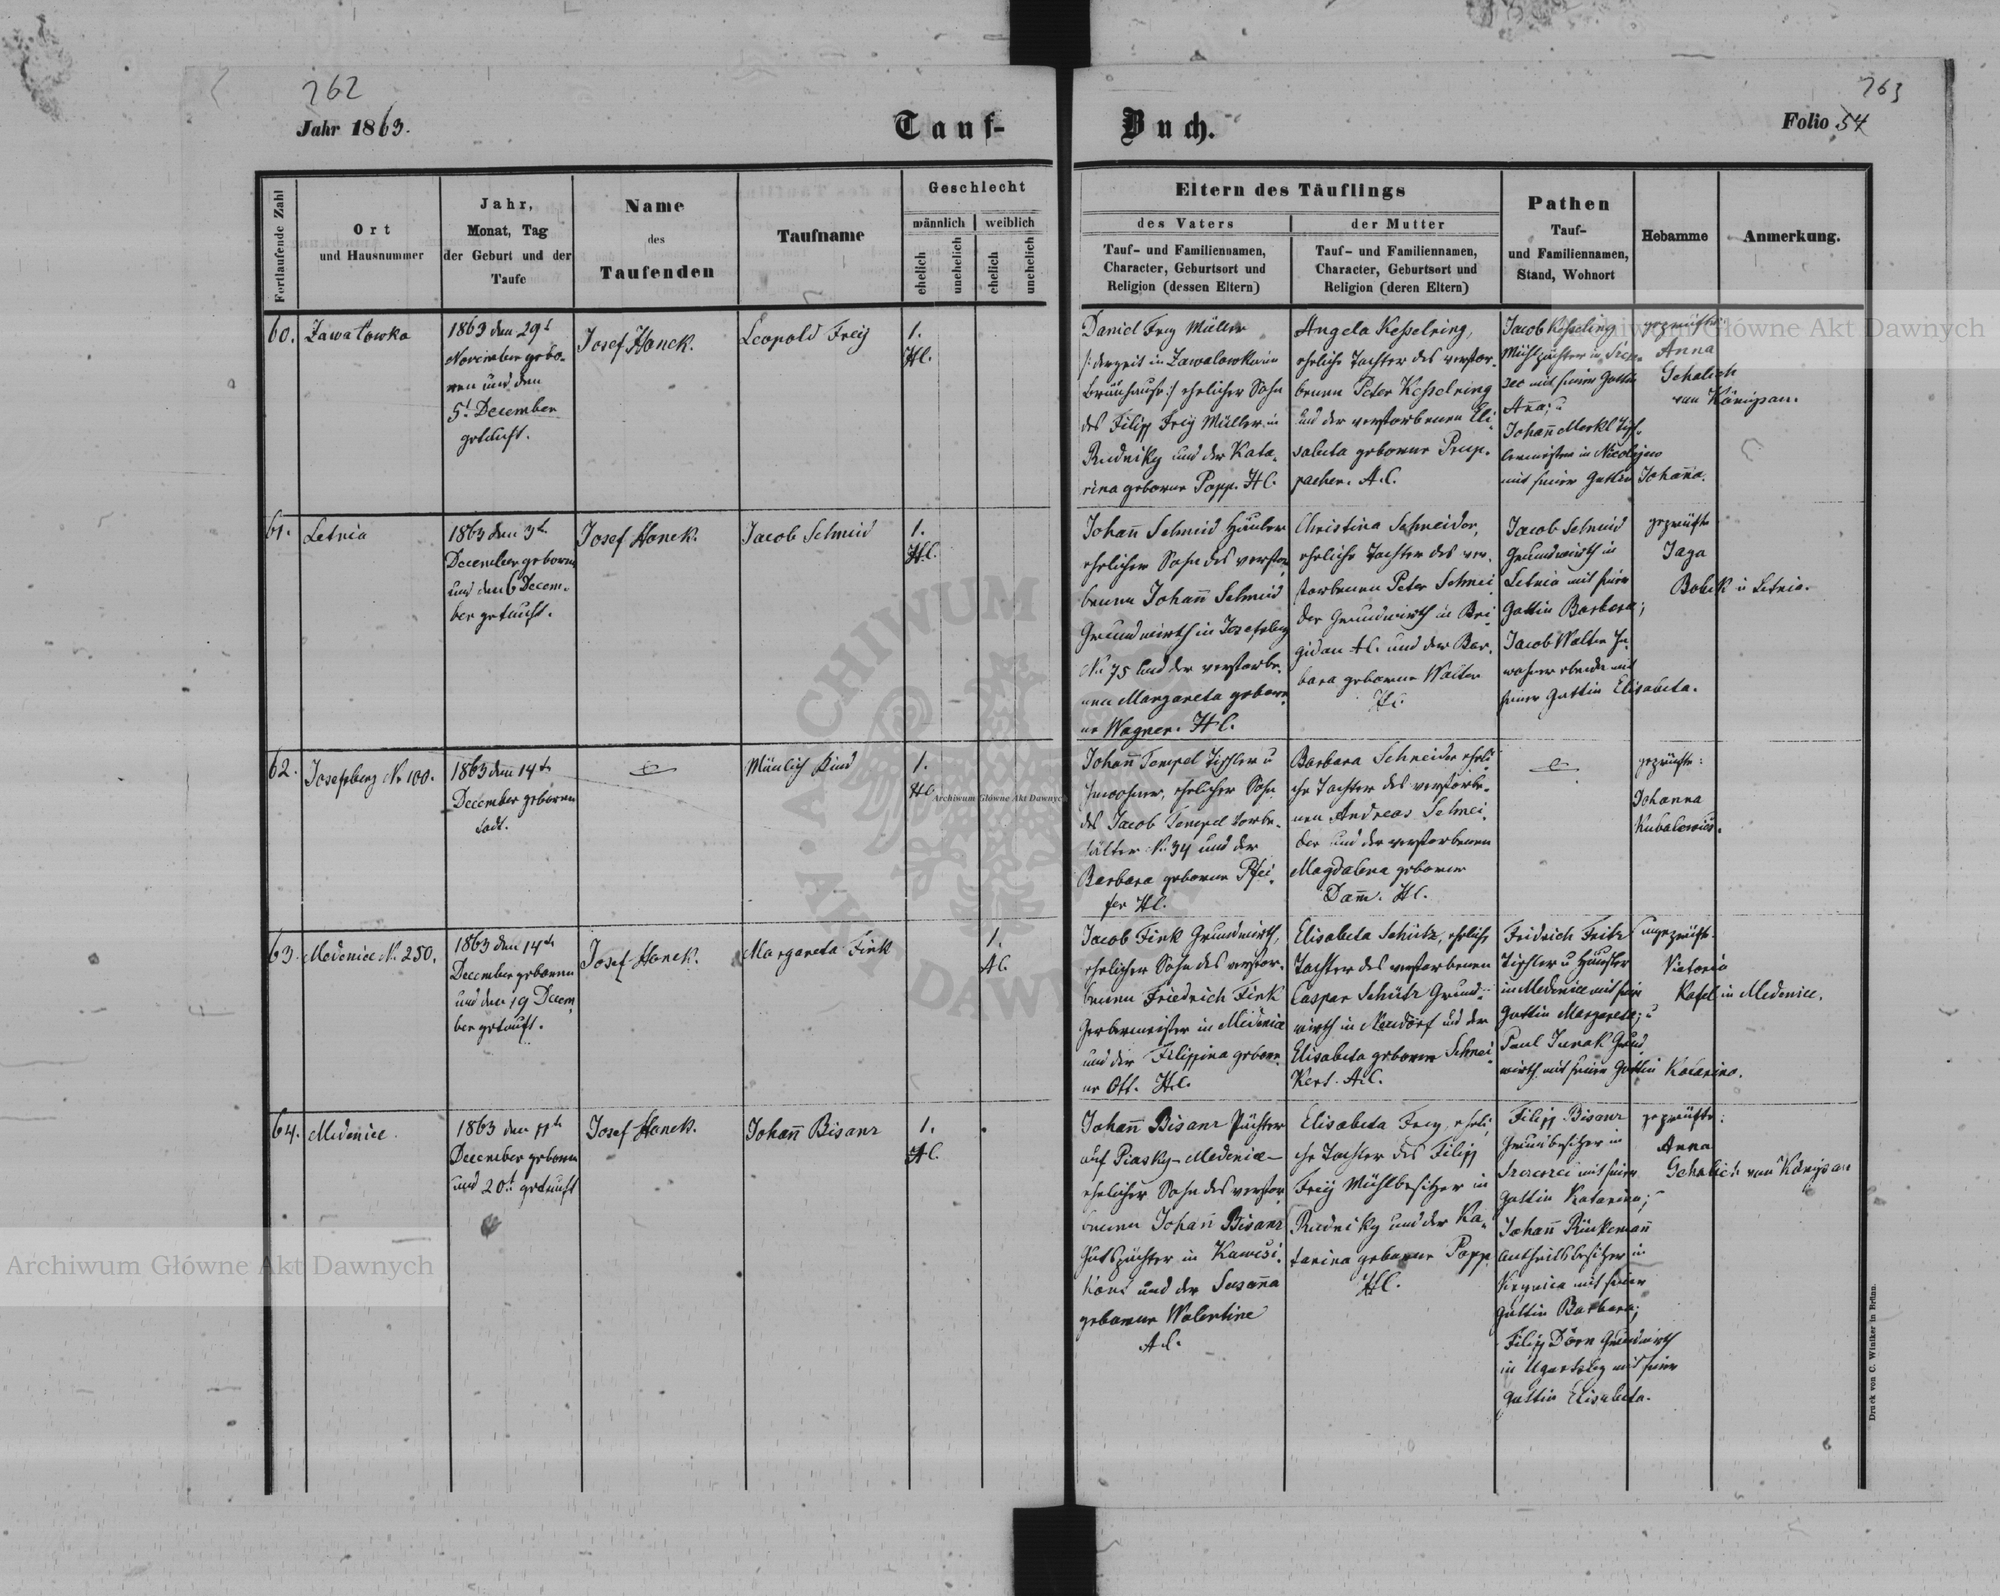 262
263
Jahr 1863.
Tauf-
Buch.
Folio 54
Fortlaufende Zahl
Ort
und Hausnummer
Jahr,
Monat, Tag
der Geburt und der
Taufe
Name
des
Taufenden
Taufname
Geschlecht
männlich
weiblich
ehelich
unehelich
ehelich
unehelich
Eltern des Täuflings
des Vaters
Tauf- und Familiennamen,
Character, Geburtsort und
Religion (dessen Eltern)
der Mutter
Tauf- und Familiennamen,
Character, Geburtsort und
Religion (deren Eltern)
Pathen
Tauf-
und Familiennamen,
Stand, Wohnort
Hebamme
Anmerkung.
60.
Zawałowka
1863 den 29t
November gebo-
ren und den
5t December
getauft.
Josef Honek.
Leopold Freÿ
1.
HC.
Daniel Frey Müller
/: derzeit in Zawalowka im
Bräuhause :/ ehelicher Sohn
des Filipp Freÿ Müller in
Rudniky und der Kata-
rina geborne Popp. HC.
Angela Kesselring,
eheliche Tochter des verstor-
benen Peter Kesselring
und der verstorbenen Eli-
sabeta geborne
A.C.
Jacob Kesselring
Mühlpächter in
mit seiner Gattin
Anna; u
Johann Merkl Tisch-
lermeister in Nicolajow
mit seiner Gattin Johanna.
geprüfte:
Anna
Gehalich
von Königsau.
61.
Letnia
1863 den 3t
December geboren
und den 6 Decem-
ber getauft.
Josef Honek.
Jacob Schmid
1.
HC.
Johann Schmid Häusler
ehelicher Sohn des verstor-
benen Johann Schmid
Grundwirth in Josefsberg
No 75 und der verstorbe-
nen Margareta gebore-
ne Wagner. HC.
Christina Schneider,
eheliche Tochter des ver-
storbenen Peter Schnei-
der Grundwirth in Bri-
gidau AC. und der Bar-
bara geborne Walter
HC.
Jacob Schmid
Grundwirth in
Letnia mit seiner
Gattin Barbara;
Jacob Walter In-
wohner ebenda mit
seiner Gattin Elisabeta.
geprüfte
Jaga
Bobek in Letnia.
62.
Josefsberg Nr 100.
1863 den 14t
December geboren
todt.
Mänlich Kind
1.
HC
Johann Tempel Tischler u
Inwohner, ehelicher Sohn
des Jacob Tempel
No 34 und der
Barbara geborne Pfei-
fer HC.
Barbara Schneider eheli-
che Tochter des verstorbe-
nen Andreas Schnei-
der und der verstorbenen
Magdalena geborne
Damm. HC.
geprüfte:
Johanna
Kubalowicz.
63.
Medenice No 250.
1863 den 14t
December geboren
und den 19 Decem-
ber getauft.
Josef Honek.
Margareta Fink
1.
AC.
Jacob Fink Grundwirth,
ehelicher Sohn des verstor-
benen Friedrich Fink
Gerbermeister in Medenice
und der Filippina gebore-
ne Ott. HC.
Elisabeta Schütz, eheliche
Tochter des verstorbenen
Caspar Schütz Grund-
wirth in Neudorf und der
Elisabeta geborne Schnei-
kert. A.C.
Fridrich Fritz
Tischler u Häusler
in Medenice mit sein
Gattin Margareta; u
Paul Junak Grund
wirth mit seiner Gattin Katarina.
ungeprüfte.
Victoria
Kafel in Medenice.
64.
Medenice.
1863 den 11t
December geboren
und 20t getauft
Josef Honek.
Johann Bisanz
1.
AC.
Johann Bisanz Pächter
auf Piasky-Medenice-
ehelicher Sohn des verstor
benen Johann Bisanz
Gutspächter in
und der Susanna
geborne Walentine
A.C.
Elisabeta Frey, eheli-
che Tochter des Filipp
Freÿ Mühlbesitzer in
Rudniky und der Ka-
tarina geborne Popp
HC.
Filipp Bisanz
Grundbesitzer in
Szczerzec mit seiner
Gattin Katarina;
Johann Rückemann
Antheilsbesitzer in
Krynica mit seiner
Gattin Barbara;
Filipp Dörn Grundwirth
in Ugartsberg mit seiner
Gattin Elisabeta.
geprüfte:
Anna
Gehalich von Königsau
Druck von C. Winiker in Brünn.
Archiwum Główne Akt Dawnych
Archiwum Główne Akt Dawnych
Archiwum Główne Akt Dawnych